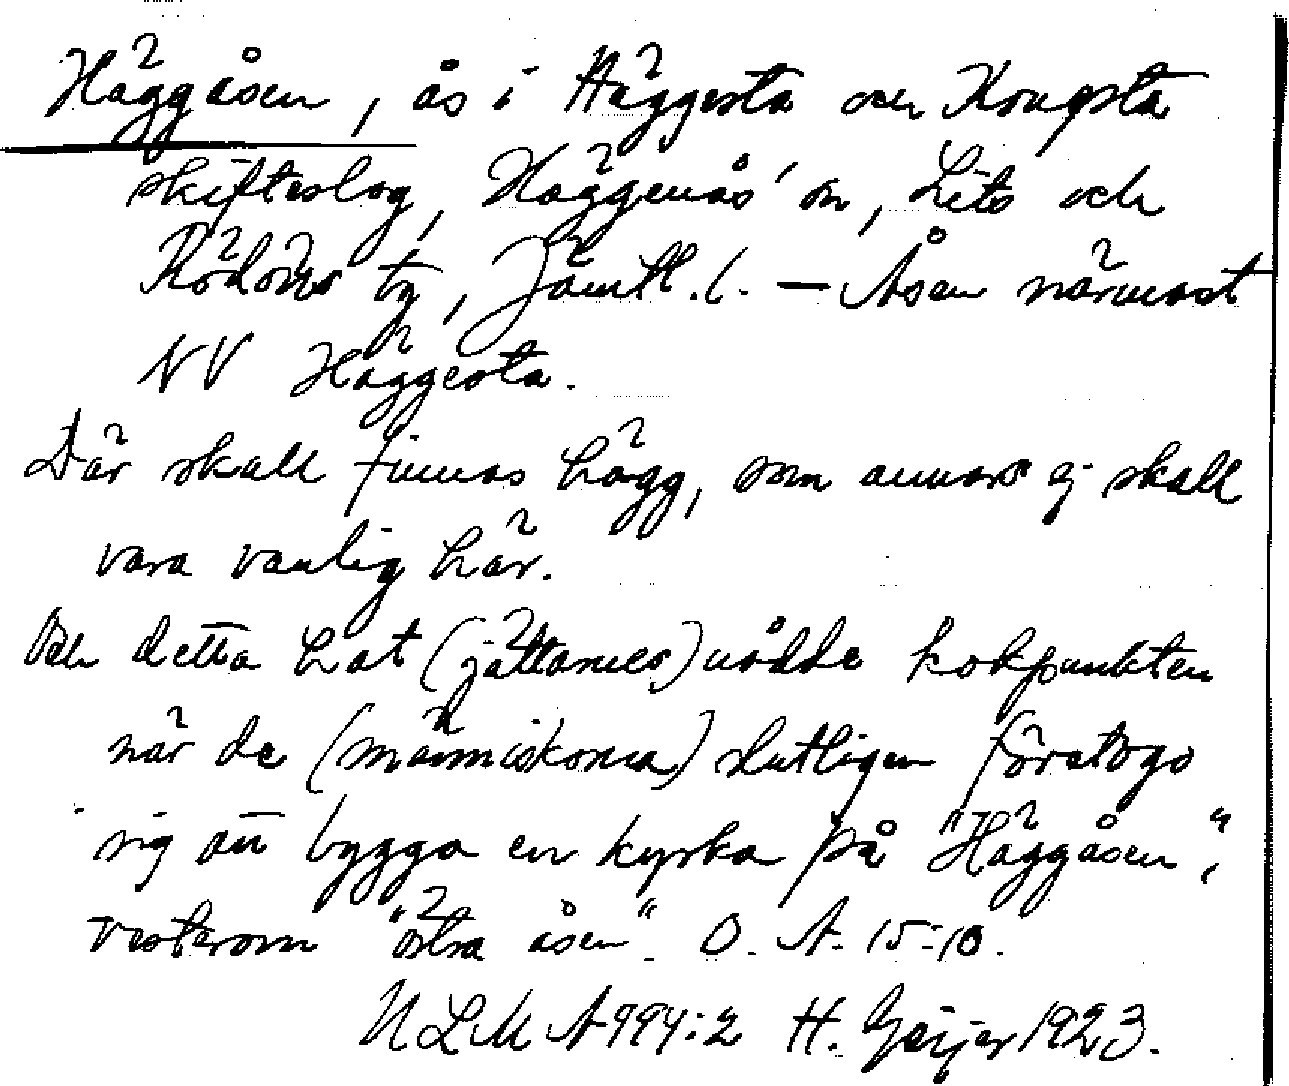 Häggåsen, ås i Häggesta och Kougsta
skifteslag, Häggenås' sn, Lits och
Rödöns tg, Jämtl. l. — Åsen närmast
NV Häggesta.
Där skall finnas hägg, som annars ej skall
vara vanlig här.
Och detta hat (jättarnes) nådde kokpunkten
när de (människorna) slutligen företogo
sig att bygga en kyrka på "Häggåsen",
vesterom "östra åsen". O. A. 15-10.
NLM A 994:2 H. Geijer 1923.